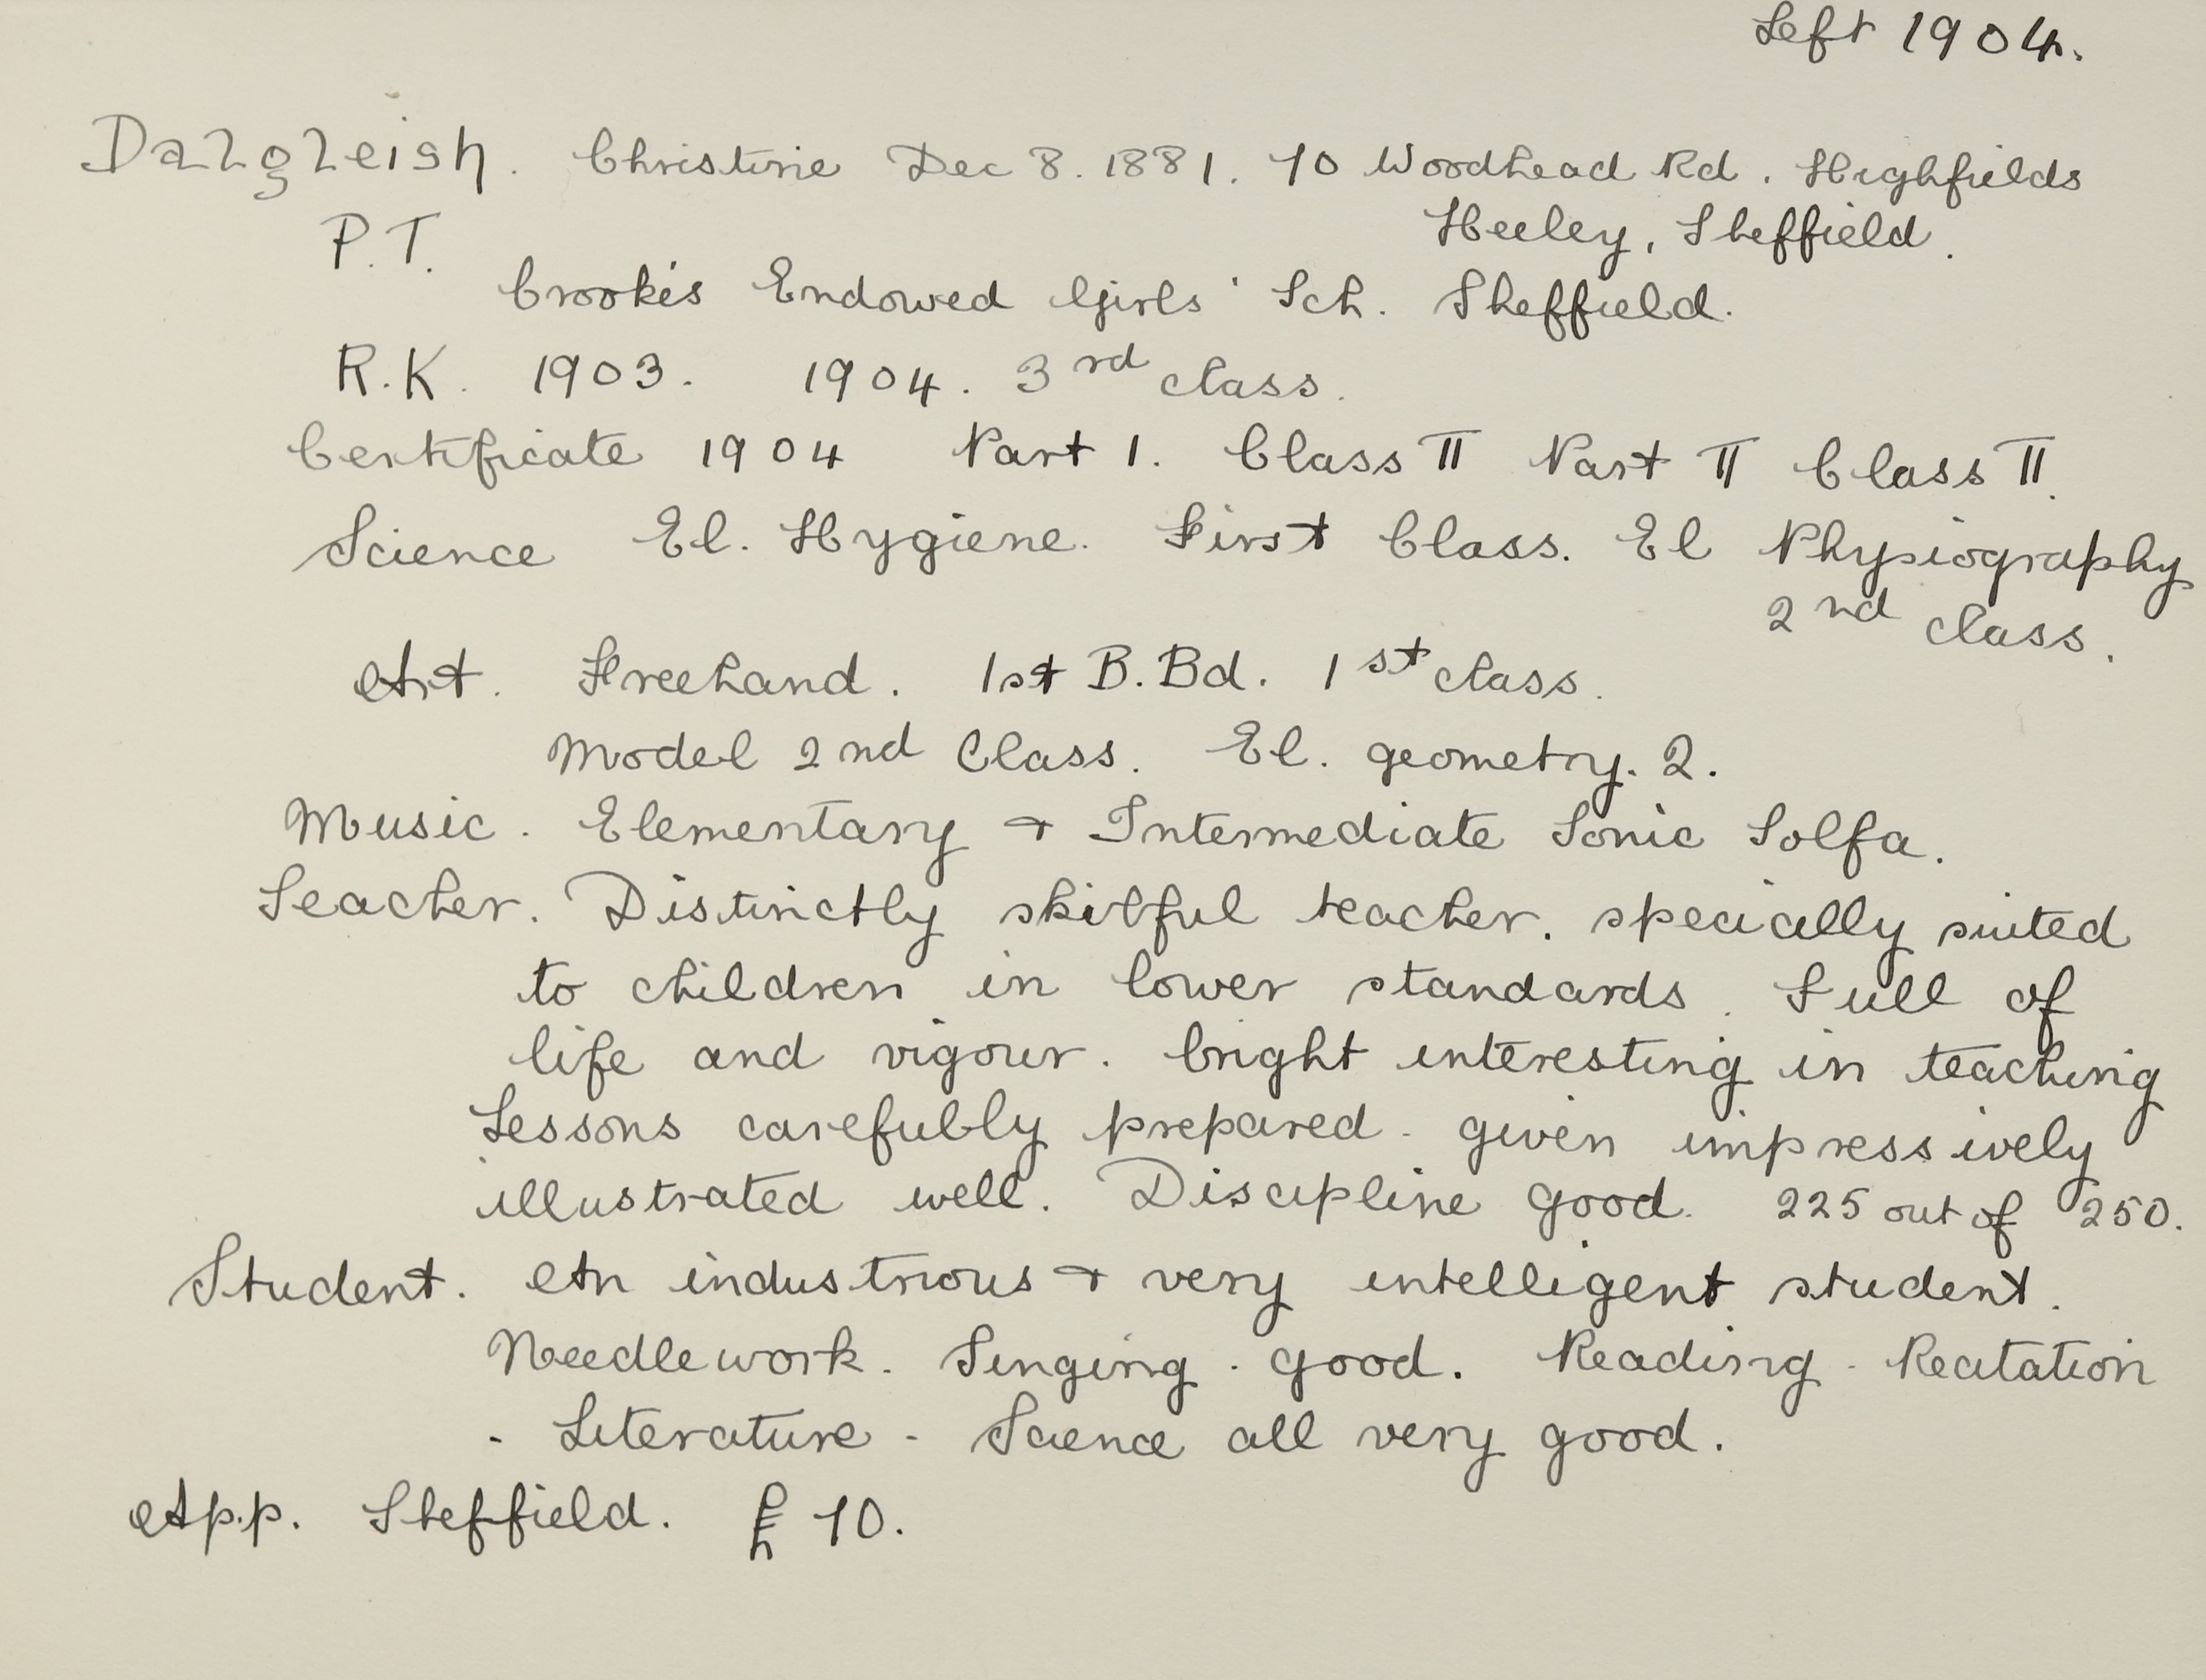 Left 1904.
Dalgleish. Christine Dec 8. 1881. 70 Woodhead Rd. Highfields
Heeley, Sheffield.
P.T.
Crooke's Endowed Girls' Sch. Sheffield.
R.K. 1903. 1904. 3rd class.
Certificate 1904 Part 1. Class II Part II Class II.
Science El. Hygiene. First Class. El Physiography
2nd class.
Art. Freehand. 1st B.Bd. 1st class.
Model 2nd Class. El. geometry. 2.
Music. Elementary + Intermediate Tonic Solfa.
Teacher. Distinctly skilful teacher. specially suited
to children in lower standards. Full of
life and vigour. bright interesting in teaching
Lessons carefully prepared - given impressively
illustrated well. Discipline good. 225 out of 250.
Student. An industrious + very intelligent student.
Needlework. Singing. good. Reading - Recitation
- Literature - Science all very good.
App. Sheffield. £70.